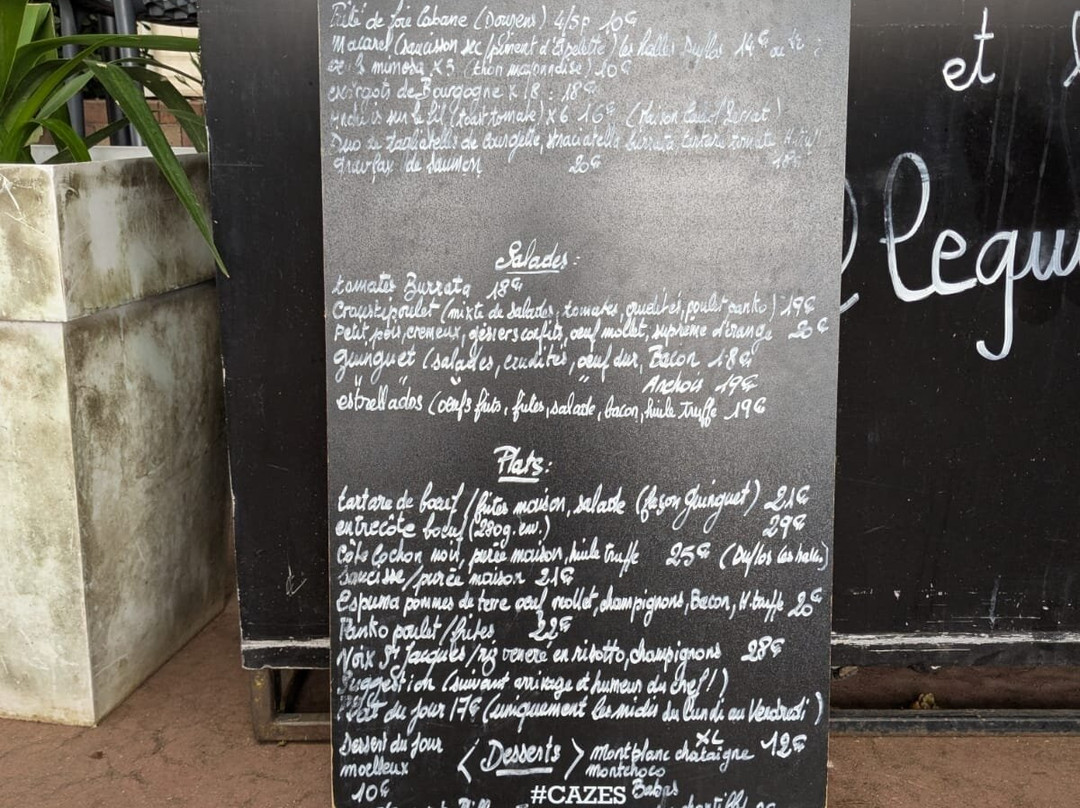 Pâté de foie Cabane (Dourens) 4/5p 10€
Macarel (saucisson sec/piment d'Espelette) les halles Duflos 14€ ou
mimosa x3 (thon mayonnaise) 10€
escargots de Bourgogne x18 : 18€
Anchois sur le fil (toast tomate) x6 16€ (Maison
Duo de tagliatelles de courgette, stracciatella burrata tartare tomate
gravlax de saumon 20€ 18€
Salades :
tomates Burrata 18€
Croustipoulet (mixte de salades, tomates, crudités, poulet panko) 19€
Petit pois, cremeux, gésiers confits, œuf mollet, suprême d'orange 20€
Guinguet (salades, crudités, œuf dur, Bacon 18€
" " Anchois 19€
estrellados (œufs frits, frites, salade, bacon, huile truffe 19€
Plats :
tartare de bœuf / frites maison, salade (façon Guinguet) 21€
entrecôte bœuf (280g env.) 29€
Côte Cochon noir, purée maison, huile truffe 25€ (Duflos les halles)
Saucisse/purée maison 21€
Espuma pommes de terre œuf mollet, champignons, Bacon, H. truffe 20€
Panko poulet/frites 22€
Noix St Jacques / riz venere en risotto, champignons 28€
Suggestion (suivant arrivage et humeur du chef !)
Plat du jour 17€ (uniquement les midis du Lundi au Vendredi)
Dessert du jour < Desserts > Montplanc chataigne XL 12€
moelleux Montchoco
10€ Babas
#CAZES
et
legu